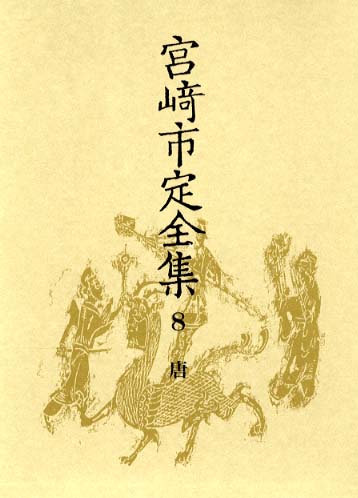 宮﨑市定全集
8
唐